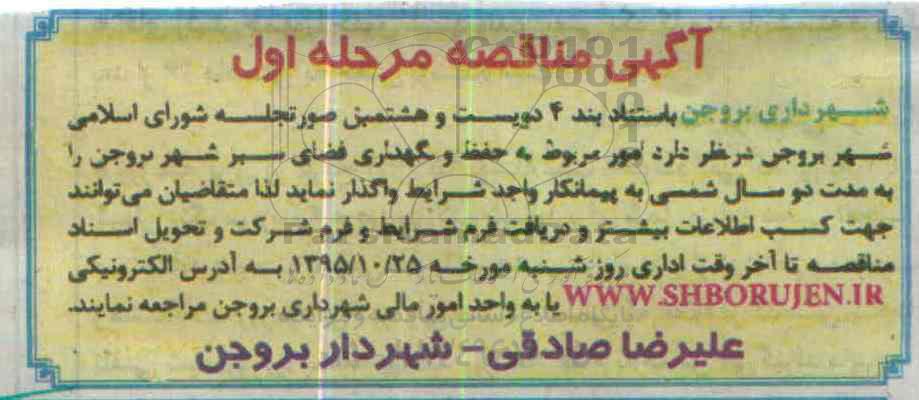 آگهی مناقصه مرحله اول
شهرداری بروجن باستناد بند ۴ دویست و هشتمین صورتجلسه شورای اسلامی
شهر بروجن در نظر دارد امور مربوط به حفظ و نگهداری فضای سبز شهر بروجن را
به مدت دو سال شمسی به پیمانکار واجد شرایط واگذار نماید لذا متقاضیان می توانند
جهت کسب اطلاعات بیشتر و دریافت فرم شرایط و فرم شرکت و تحویل اسناد
مناقصه تا آخر وقت اداری روز شنبه مورخه ۱۳۹۵/۱۰/۲۵ به آدرس الکترونیکی
WWW.SHBORUJEN.IR یا به واحد امور مالی شهرداری بروجن مراجعه نمایند.
علیرضا صادقی - شهردار بروجن